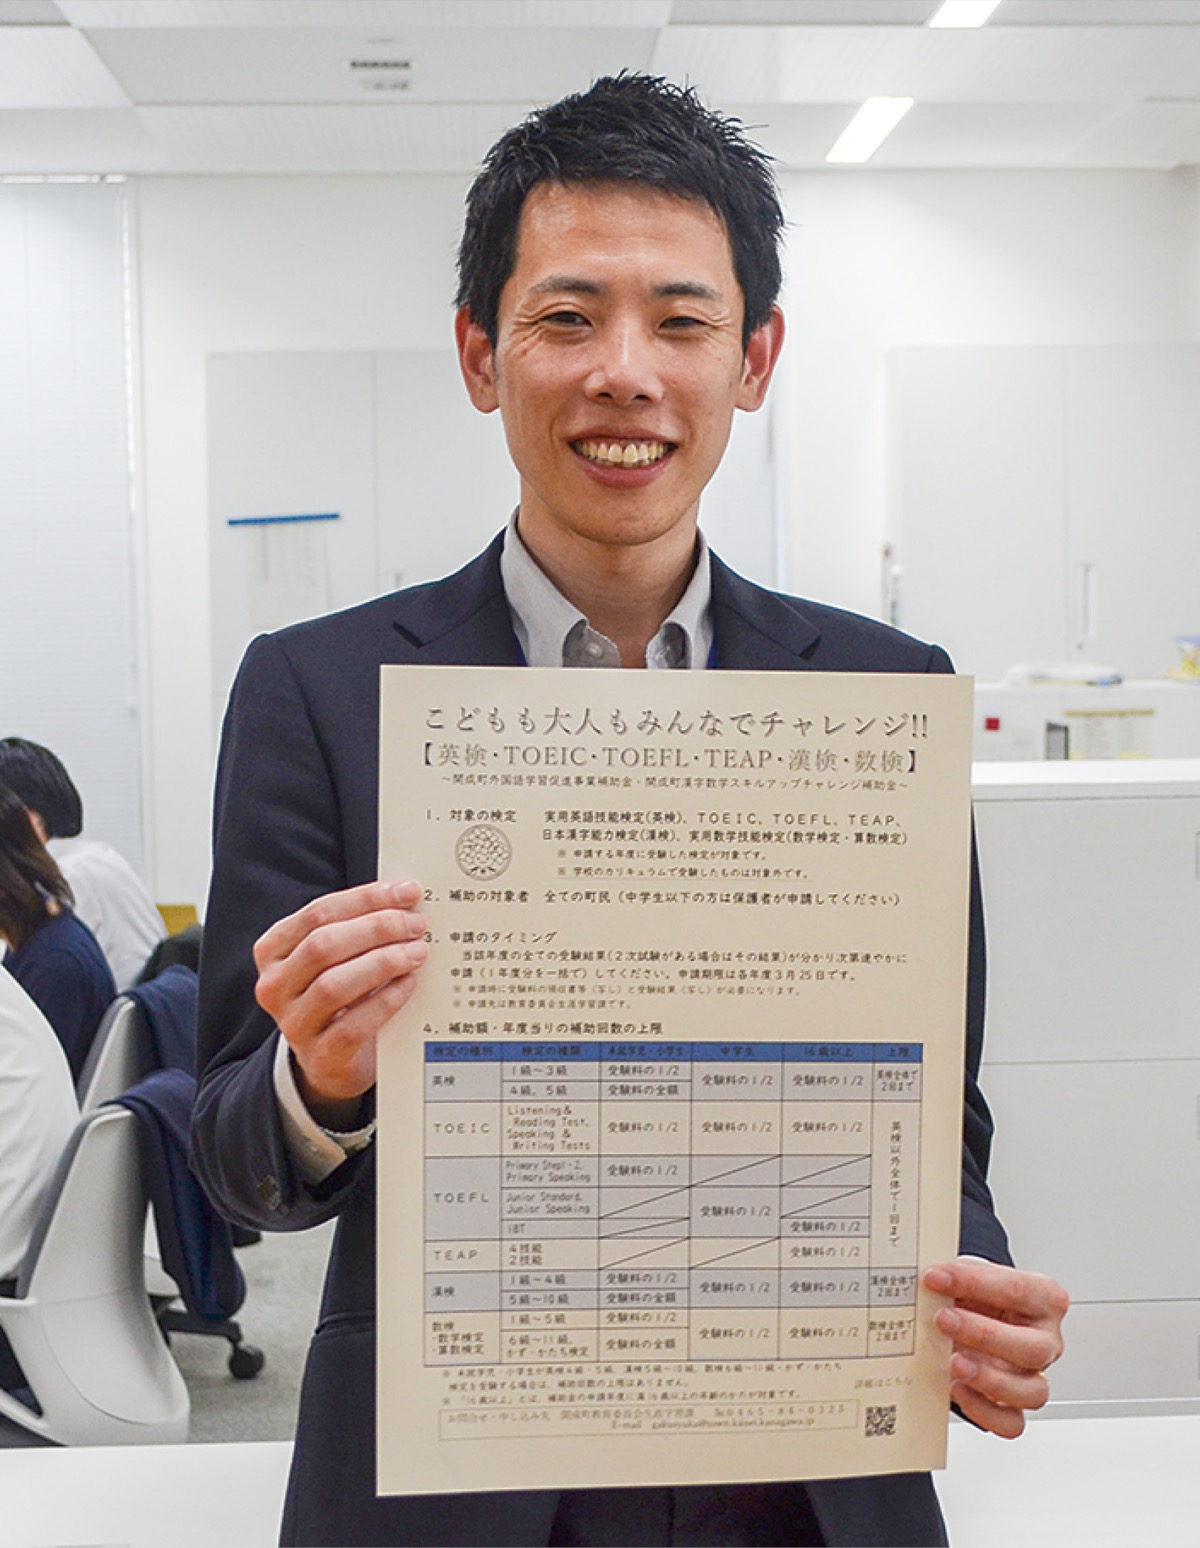 こどもも大人もみんなでチャレンジ!!
【英検・TOEIC・TOEFL・TEAP・漢検・数検】
～開成町外国語学習促進事業補助金・開成町漢字数学スキルアップチャレンジ補助金～
1．対象の検定　実用英語技能検定(英検)、TOEIC、TOEFL、TEAP、
日本漢字能力検定(漢検)、実用数学技能検定(数学検定・算数検定)
※ 申請する年度に受験した検定が対象です。
※ 学校のカリキュラムで受験したものは対象外です。
2．補助の対象者　全ての町民（中学生以下の方は保護者が申請してください）
3．申請のタイミング
当該年度の全ての受験結果(2次試験がある場合はその結果)が分かり次第速やかに
申請（1年度分を一括で）してください。申請期限は各年度3月25日です。
※ 申請時に受験料の領収書等（写し）と受験結果（写し）が必要になります。
※ 申請先は教育委員会生涯学習課です。
4．補助額・年度当りの補助回数の上限
検定の種別　検定の種類　未就学児・小学生　中学生　16歳以上　上限
英検　1級～3級　受験料の1/2　受験料の1/2　受験料の1/2　英検全体で2回まで
4級，5級　受験料の全額
TOEIC　Listening＆ Reading Test, Speaking ＆ Writing Tests　受験料の1/2　受験料の1/2　受験料の1/2　英検以外全体で1回まで
TOEFL　Primary Step1・2, Primary Speaking　受験料の1/2
Junior Standard, Junior Speaking　受験料の1/2
iBT　受験料の1/2
TEAP　4技能 2技能　受験料の1/2
漢検　1級～4級　受験料の1/2　受験料の1/2　受験料の1/2　漢検全体で2回まで
5級～10級　受験料の全額
数検 ・数学検定 ・算数検定　1級～5級　受験料の1/2　受験料の1/2　受験料の1/2　数検全体で2回まで
6級～11級，かず・かたち検定　受験料の全額
※ 未就学児・小学生が英検4級・5級，漢検5級～10級，数検6級～11級・かず・かたち
検定を受験する場合は、補助回数の上限はありません。
※ 「16歳以上」とは、補助金の申請年度に満16歳以上の年齢のかたが対象です。
詳細はこちら
お問合せ・申し込み先　開成町教育委員会生涯学習課　℡0465-84-0325
E-mail